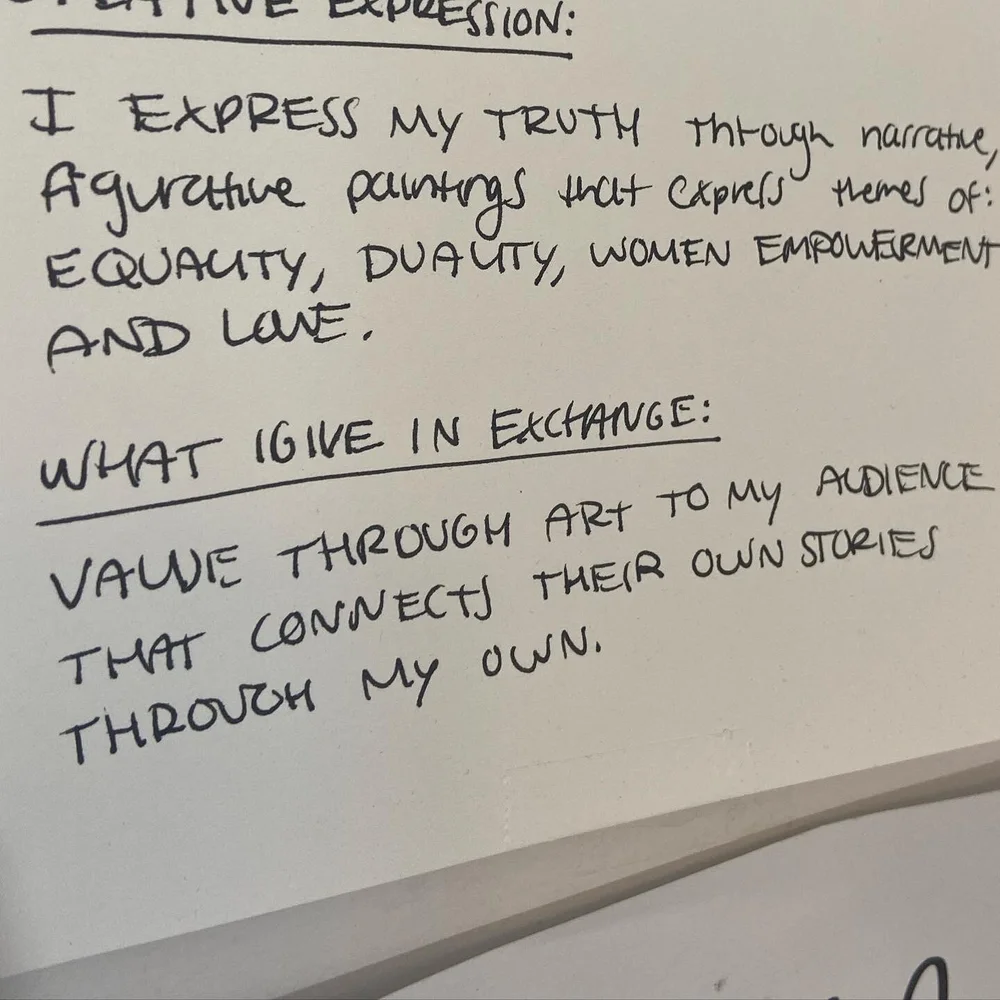 CREATIVE EXPRESSION:
I EXPRESS MY TRUTH through narrative,
figurative paintings that express themes of:
EQUALITY, DUALITY, WOMEN EMPOWERMENT
AND LOVE.
WHAT I GIVE IN EXCHANGE:
VALUE THROUGH ART TO MY AUDIENCE
THAT CONNECTS THEIR OWN STORIES
THROUGH MY OWN.